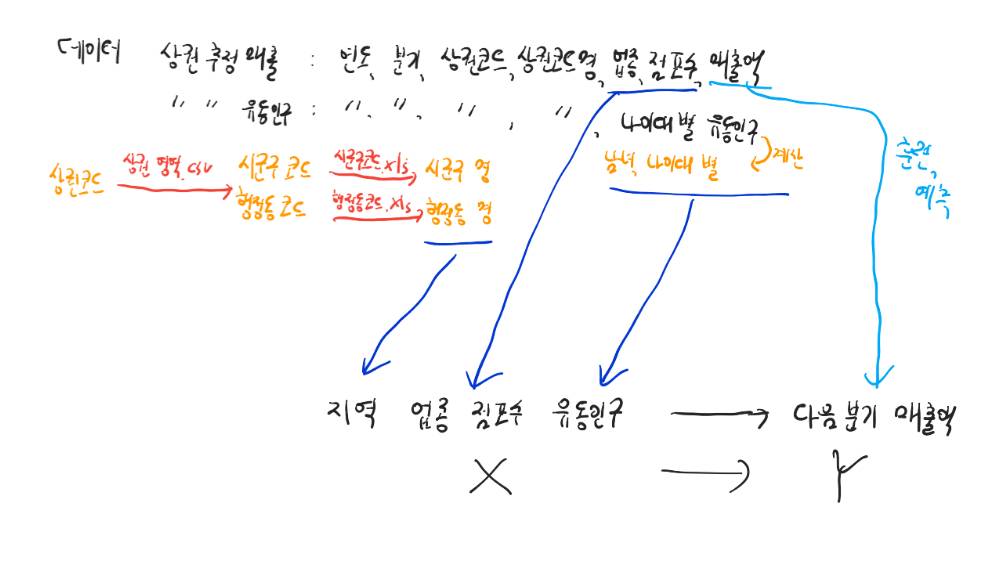 데이터 상권 추정 매출 : 년도, 분기, 상권코드, 상권코드명, 업종, 점포수, 매출액
〃 〃 유동인구 : 〃, 〃, 〃, 〃, 나이대 별 유동인구
남녀, 나이대 별 계산
상권코드 상권 영역.csv 시군구 코드 시군구코드.xls 시군구 명
행정동 코드 행정동코드.xls 행정동 명
훈련,
예측
지역 업종 점포수 유동인구 → 다음 분기 매출액
X → Y